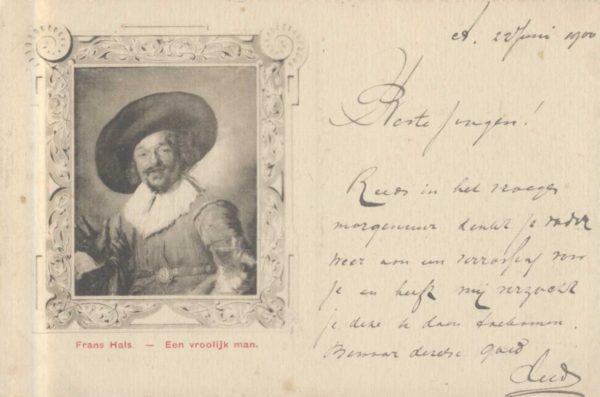 A. 22 Juni 1900
Beste jongen!
Reeds in het vroege
morgenuur denkt je vader
weer aan een verrassing voor
je en heeft mij verzocht
je deze te doen toekomen.
Bewaar deze goed
Frans Hals. — Een vroolijk man.